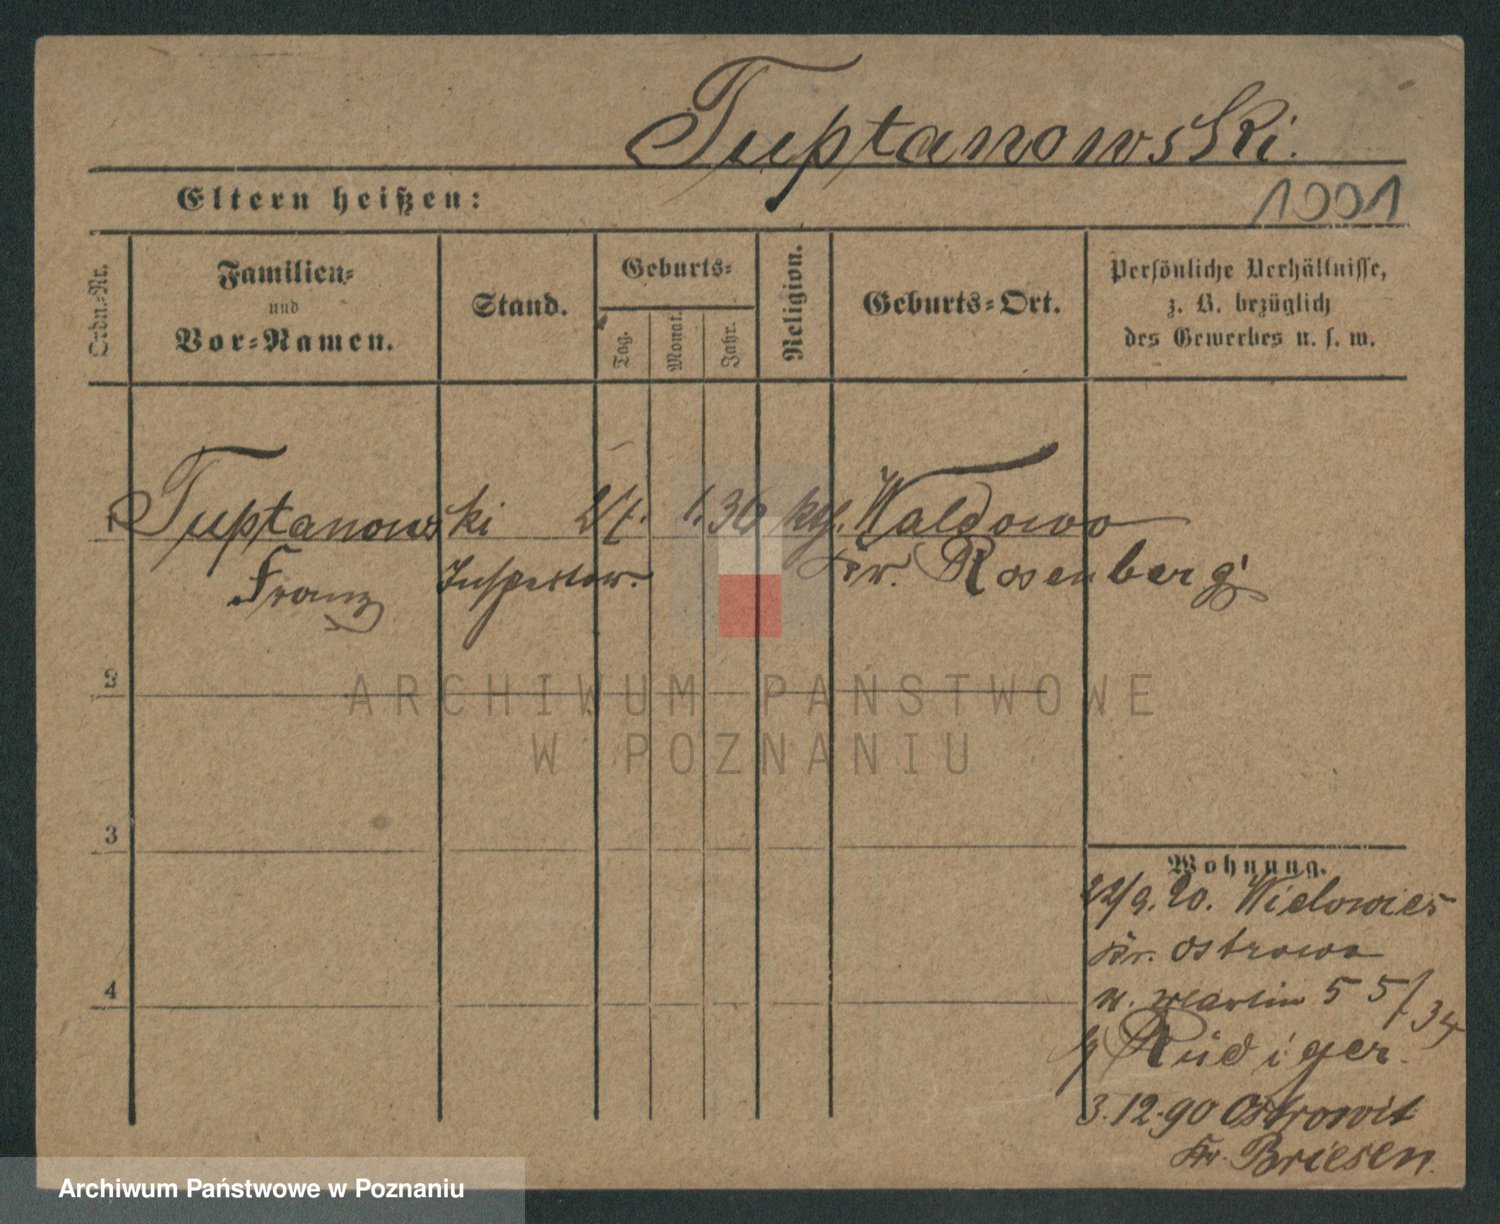 Tuptanowski.
Eltern heißen:
1001
Ordn.-Nr.
Familien-
und
Vor-Namen.
Stand.
Geburts-
Tag.
Monat.
Jahr.
Religion.
Geburts-Ort.
Persönliche Verhältnisse,
z. B. bezüglich
des Gewerbes u. s. w.
1 Tuptanowski 1. 36 kth. Waldowo
Franz Inspector. Kr. Rosenberg
2
ARCHIWUM PAŃSTWOWE
W POZNANIU
3
4
Wohnung.
22/9. 90. Wielowies
Kr. Ostrowo
n. Martin 55/34
Rüdiger.
3.12.90 Ostrowit
Kr. Briesen.
Archiwum Państwowe w Poznaniu